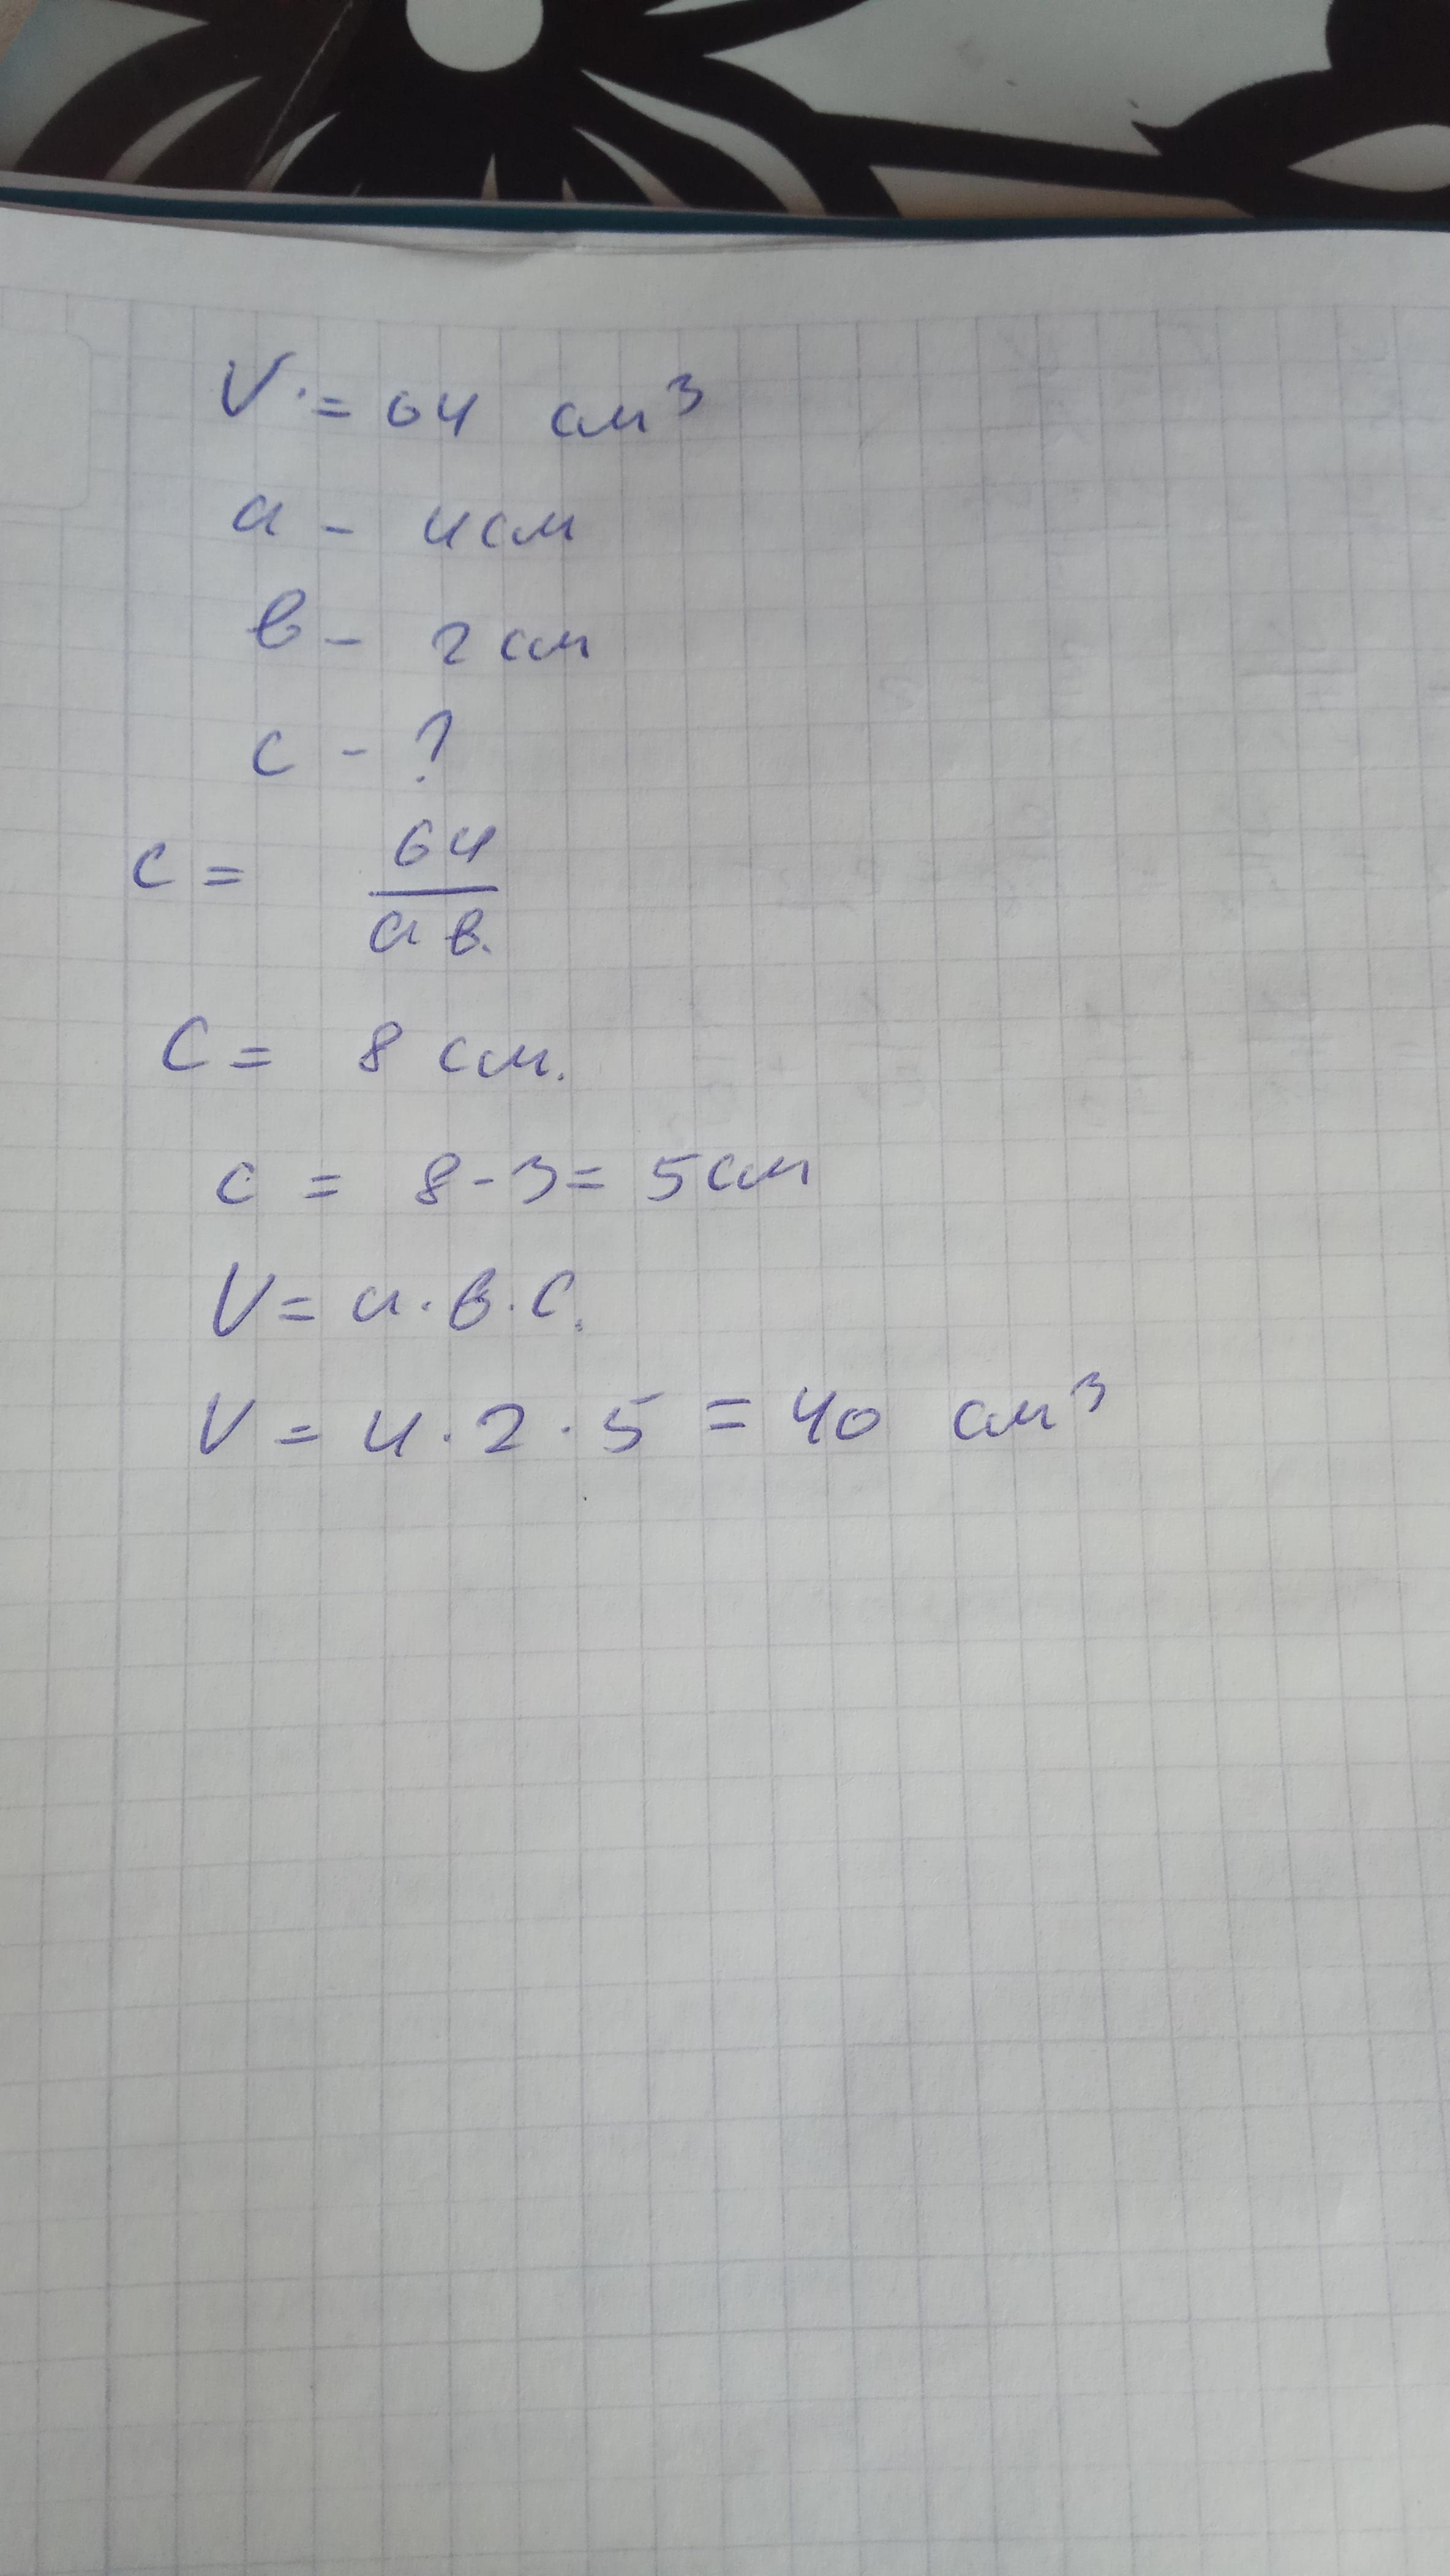 V = 64 см³
а - 4см
в - 2см
с - ?
с = 64
ав.
С = 8 см.
с = 8-3= 5см
V= а·в·с.
V = 4·2·5 = 40 см³